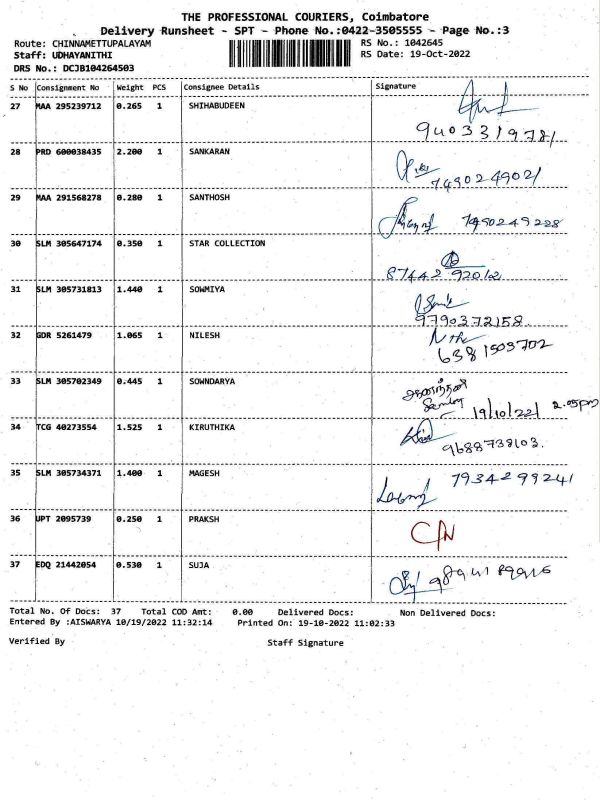 THE PROFESSIONAL COURIERS, Coimbatore
Delivery Runsheet - SPT - Phone No.:0422-3505555 - Page No.:3
Route: CHINNAMETTUPALAYAM RS No.: 1042645
Staff: UDHAYANITHI RS Date: 19-Oct-2022
DRS No.: DCJB104264503
S No Consignment No Weight PCS Consignee Details Signature
27 MAA 295239712 0.265 1 SHIHABUDEEN
9403319781
28 PRD 600038435 2.200 1 SANKARAN
7490249021
29 MAA 291568278 0.280 1 SANTHOSH 7490249228
30 SLM 305647174 0.350 1 STAR COLLECTION
87442 92012
31 SLM 305731813 1.440 1 SOWMIYA
9790372158
32 GDR 5261479 1.065 1 NILESH
6381503702
33 SLM 305702349 0.445 1 SOWNDARYA
19/10/22 2.05pm
34 TCG 40273554 1.525 1 KIRUTHIKA
9688738103.
35 SLM 305734371 1.400 1 MAGESH 7934299241
36 UPT 2095739 0.250 1 PRAKSH
C/N
37 EDQ 21442054 0.530 1 SUJA
Total No. Of Docs: 37 Total COD Amt: 0.00 Delivered Docs: Non Delivered Docs:
Entered By :AISWARYA 10/19/2022 11:32:14 Printed On: 19-10-2022 11:02:33
Verified By Staff Signature